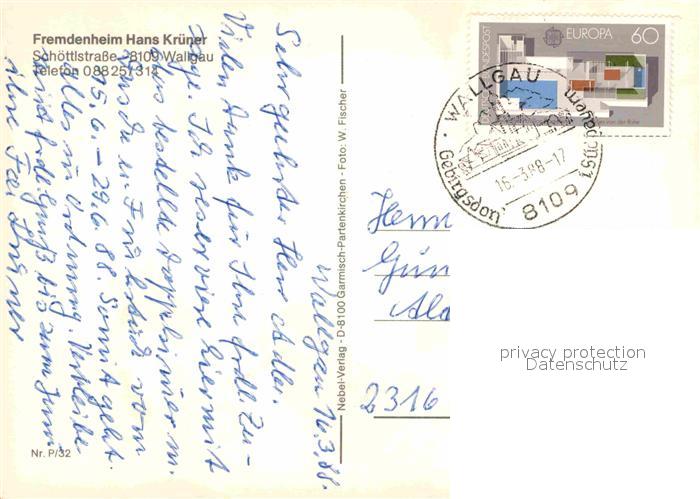 Fremdenheim Hans Krüner
Schöttlstraße 8109 Wallgau
Telefon 08825/314
Wallgau 16.3.88.
Sehr geehrter Herr Adler.
Vielen Dank für Ihre frdl. Zu-
sage. Ich reserviere hiermit
das bestellte Doppelzimmer m.
Dusche u. Frühstück vom
15.6. – 29.6.88. Somit geht
alles in Ordnung. Verbleibe
mit frdl. Gruß bis zum Juni
ihre Fam. Krüner
Nr. P/32
Nebel-Verlag - D-8100 Garmisch-Partenkirchen - Foto: W. Fischer
BUNDESPOST
EUROPA 60
CEPT
van der Rohe
WALLGAU
Gebirgsdorf
16.-3.88-17
8109
Herrn
Gün
2316
privacy protection
Datenschutz